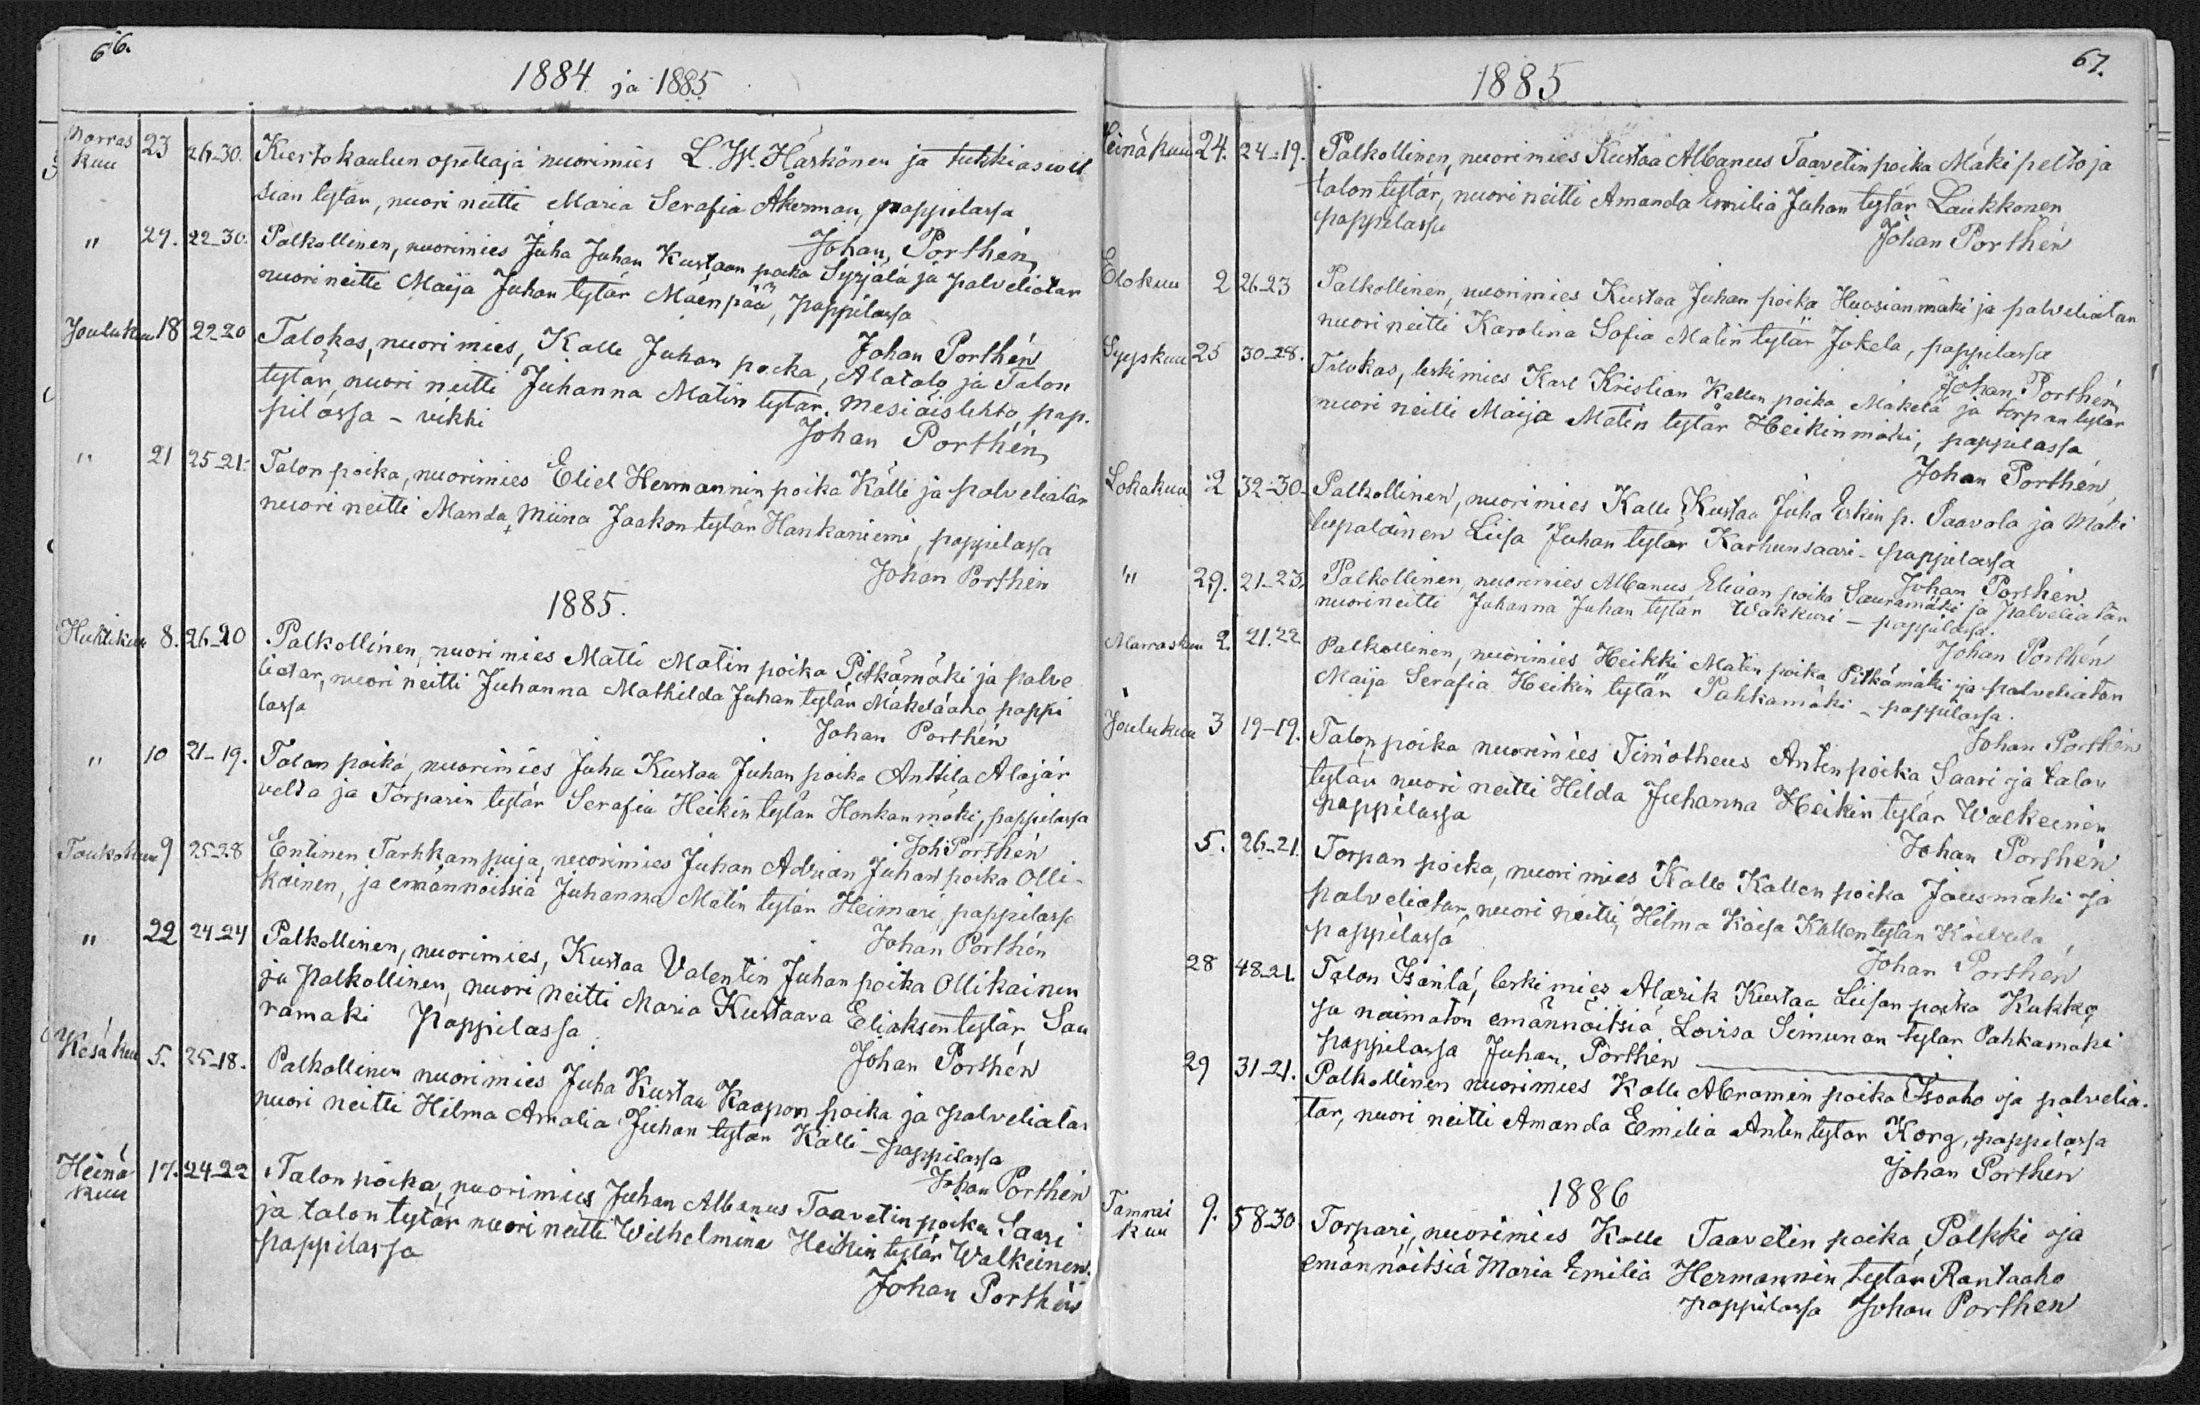 66.
1884 ja 1885
Marras kuu 23 26-30. Kiertokaulun opettaja nuorimies L. W. Härkönen ja tukkiaswil
sian tytär, nuori neitti Maria Serafia Åkerman, pappilassa
Johan Porthén,
" 29. 22-30. Palkollinen, nuorimies Juha Juhan Kustaan poika Syrjälä ja palveliatar
nuori neitti Maija Juhan tytär Mäenpää, pappilassa
Johan Porthén
Joulukuu 18 22-20 Talokas, nuori mies, Kalle Juhan poika, Alatalo ja Talon
tytär, nuori neitti Juhanna Matin tytär Mesiäislehto, pap.
pilassa - vikki
Johan Porthén,
" 21 25-21- Talon poika, nuorimies Eliel Hermannin poika Källi ja palveliatar
nuori neitti Manda, Miina Jaakon tytär Hankaniemi, pappilassa
Johan Porthén
1885.
Huhtikuu 8. 26-20 Palkollinen, nuori mies Matti Matin poika Pitkämäki ja palve
liatar, nuori neitti Juhanna Mathilda Juhan tytär Mäkeläaho, pappi
lassa
Johan Porthén
" 10 21-19. Talon poika, nuorimies Juha Kustaa Juhan poika Anttila Alajär
veltä ja Torparin tytär Serafia Heikin tytär Honkanmäki, pappilassa
Joh: Porthén
Toukokuu 9 25-28 Entinen Tarhkampuja, nuorimies Juhan Adrian Juhan poika Olli-
kainen, ja emännöitsiä Juhanna Matin tytär Heimari, pappilassa
Johan Porthén
" 22 24-24 Palkollinen, nuorimies, Kustaa Valentin Juhan poika Ollikainen
ja palkollinen, nuori neitti Maria Kustaava Eliaksen tytär, Sau
ramaki Pappilassa
Johan Porthén
Kesäkuu 5. 25-18. Palkollinen nuorimies Juha Kustaa Kaapon poika ja palveliatar
nuori neitti Hilma Amalia Juhan tytär Källi - pappilassa
Johan Porthén
Heinä kuu 17. 24-22 Talon poika, nuorimies Juhan Albanus Taavetin poika Saari
ja talon tytär nuori neitti Wilhelmina Heikin tytär Walkeinen.
pappilassa
Johan Porthén
67.
1885
Heinäkuu 24. 24-19. Palkollinen, nuorimies Kustaa Albanus Taavetinpoika Mäkipelto ja
talon tytär, nuori neitti Amanda Emilia Juhan tytär Laukkonen
pappilassa
Johan Porthén
Elokuu 2 26-23 Palkollinen, nuorimies Kustaa Juhan poika Huosianmäki ja palveliatar
nuori neitti Karolina Sofia Matin tytär Jokela, pappilassa
Johan Porthén
Syyskuu 25 30-28. Talokas, leskimies Karl Kristian Kallen poika Mäkelä ja torpan tytär
nuori neitti Maija Matin tytär Heikinmäki, pappilassa
Johan Porthén,
Lokakuu 2 32-30- Palkollinen, nuorimies Kalle Kustaa Juha Eskin p. Paavola ja Mäki
tupalainen Liisa Juhan tytär Karhunsaari - pappilassa
Johan Porthén
" 29. 21-23. Palkollinen, nuorimies Albanus Eliaan poika Sauramäki ja palveliatar
nuorineitti Juhanna Juhan tytär Wakkuri - pappilassa.
Johan Porthén
Marraskuu 2. 21.22 Palkollinen, nuorimies Heikki Matin poika Pitkämäki ja palveliatar
Maija Serafia Heikin tytär Pahkamäki - pappilassa.
Johan Porthén
Joulukuu 3 19-19. Talon poika nuorimies Timotheus Antin poika Saari ja talon
tytär nuori neitti Hilda Juhanna Heikin tytär Walkeinen
pappilassa
Johan Porthén
5. 26-21. Torpan poika, nuori mies Kalle Kallen poika Jousmäki ja
palveliatar, nuori neitti, Hilma Kaisa Kallen tytär Koivula,
pappilassa
Johan Porthén
28 48-21. Talon Isäntä, leskimies Alarik Kustaa Liisan poika Kukko
ja naimaton emännöitsiä Lovisa Simunan tytär Pahkamäki
pappilassa Juhan Porthén
29 31-21. Palkollinen nuorimies Kalle Abramin poika Isoaho ja palvelia-
tar, nuori neitti Amanda Emilia Antin tytar Korg, pappilassa
Johan Porthén
1886
Tammi kuu 9. 58-30 Torpari, nuorimies Kalle Taavetin poika, Palkki ja
emännöitsiä Maria Emilia Hermannin tytär Rantaaho
pappilassa Johan Porthen